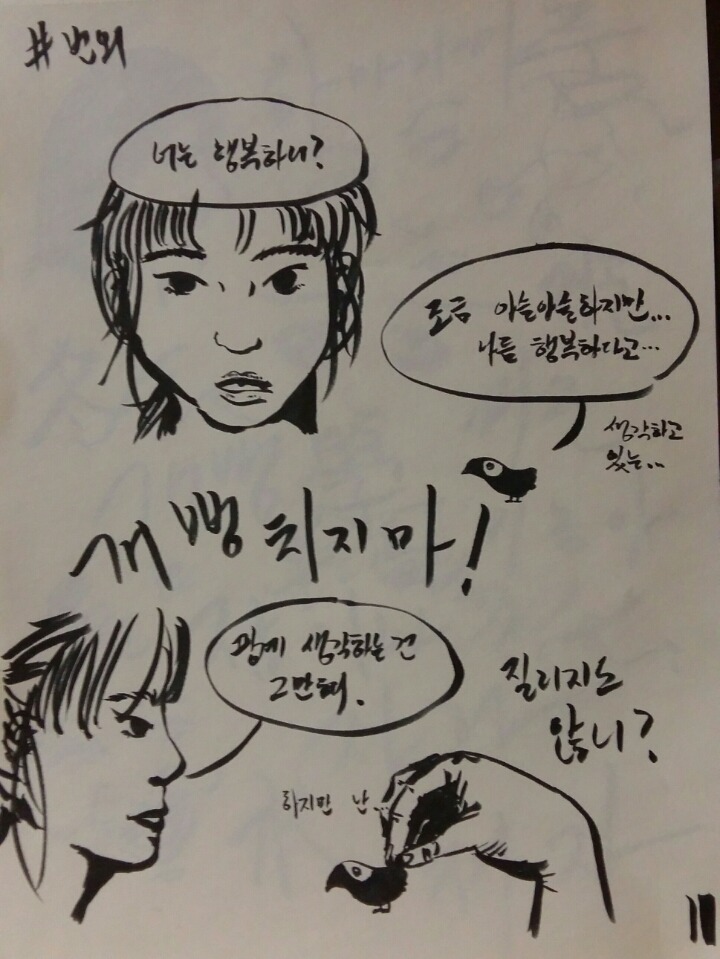 #번외
너는 행복하니?
조금 아슬아슬하지만...
나름 행복하다고...
생각하고
있는...
개뻥치지마!
함께 생각하는 건
그만해.
질리지도
않니?
하지만 난...
11